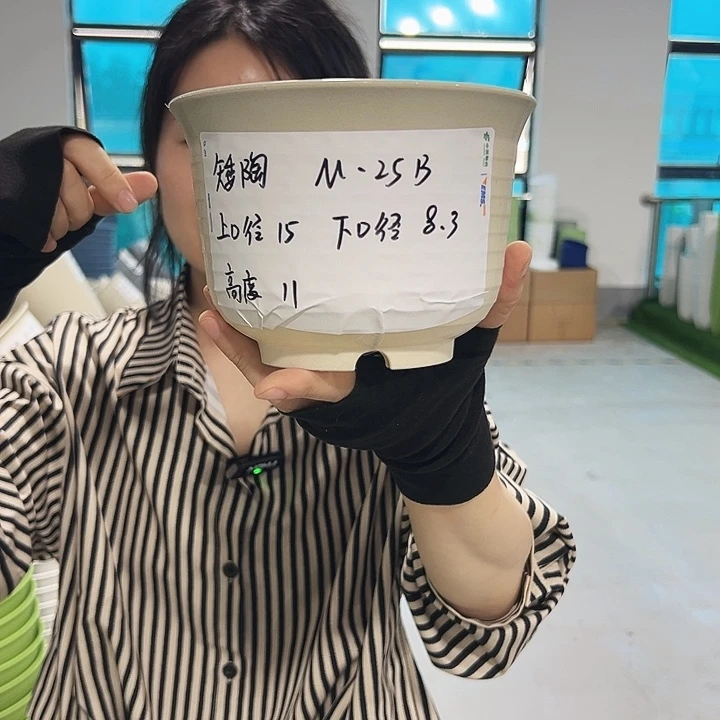 矮陶 M-25B
上口径 15 下口径 8.3
高度 11